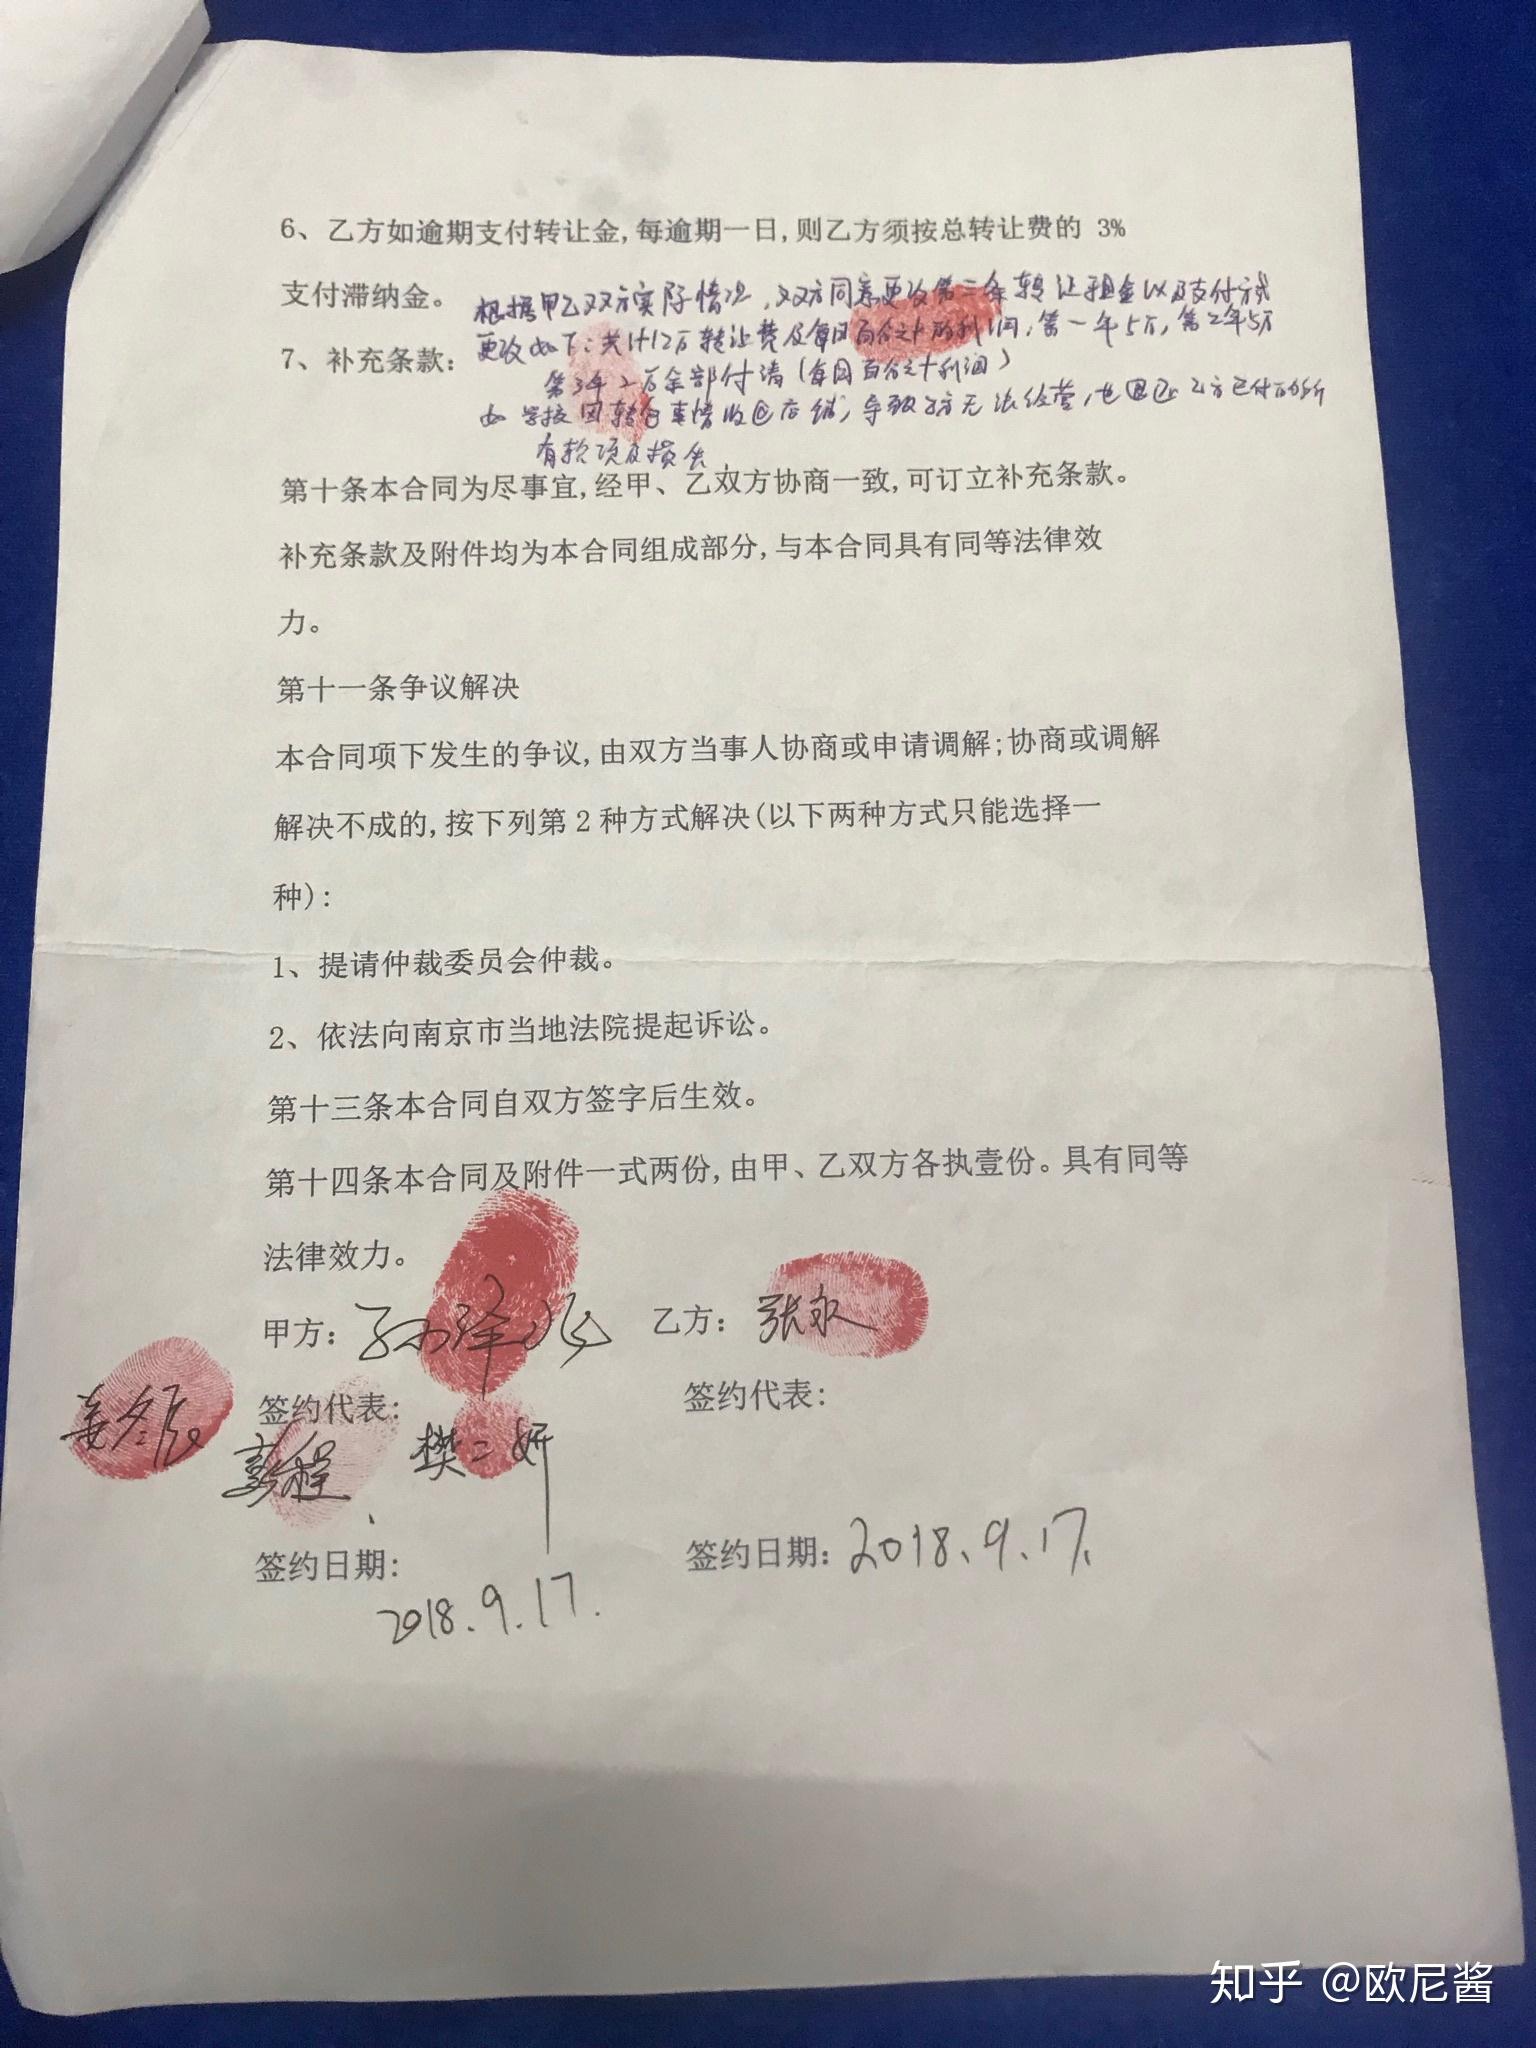 6、乙方如逾期支付转让金,每逾期一日,则乙方须按总转让费的 3%
支付滞纳金。
7、补充条款:
根据甲乙双方实际情况,双方同意更改第三条转让租金以及支付方式
更改如下:共计12万转让费及每月百分之十的利润,第一年5万,第二年5万
第3年2万全部付清(每月百分之十利润)
如学校因转包事情收回店铺,导致乙方无法经营,乙方已付的所
有款项及损失
第十条本合同为尽事宜,经甲、乙双方协商一致,可订立补充条款。
补充条款及附件均为本合同组成部分,与本合同具有同等法律效
力。
第十一条争议解决
本合同项下发生的争议,由双方当事人协商或申请调解;协商或调解
解决不成的,按下列第2种方式解决(以下两种方式只能选择一
种):
1、提请仲裁委员会仲裁。
2、依法向南京市当地法院提起诉讼。
第十三条本合同自双方签字后生效。
第十四条本合同及附件一式两份,由甲、乙双方各执壹份。具有同等
法律效力。
甲方: 孙泽 乙方: 张永
签约代表: 签约代表:
彭程 樊二妍
签约日期: 签约日期: 2018.9.17.
2018.9.17.
知乎 @欧尼酱